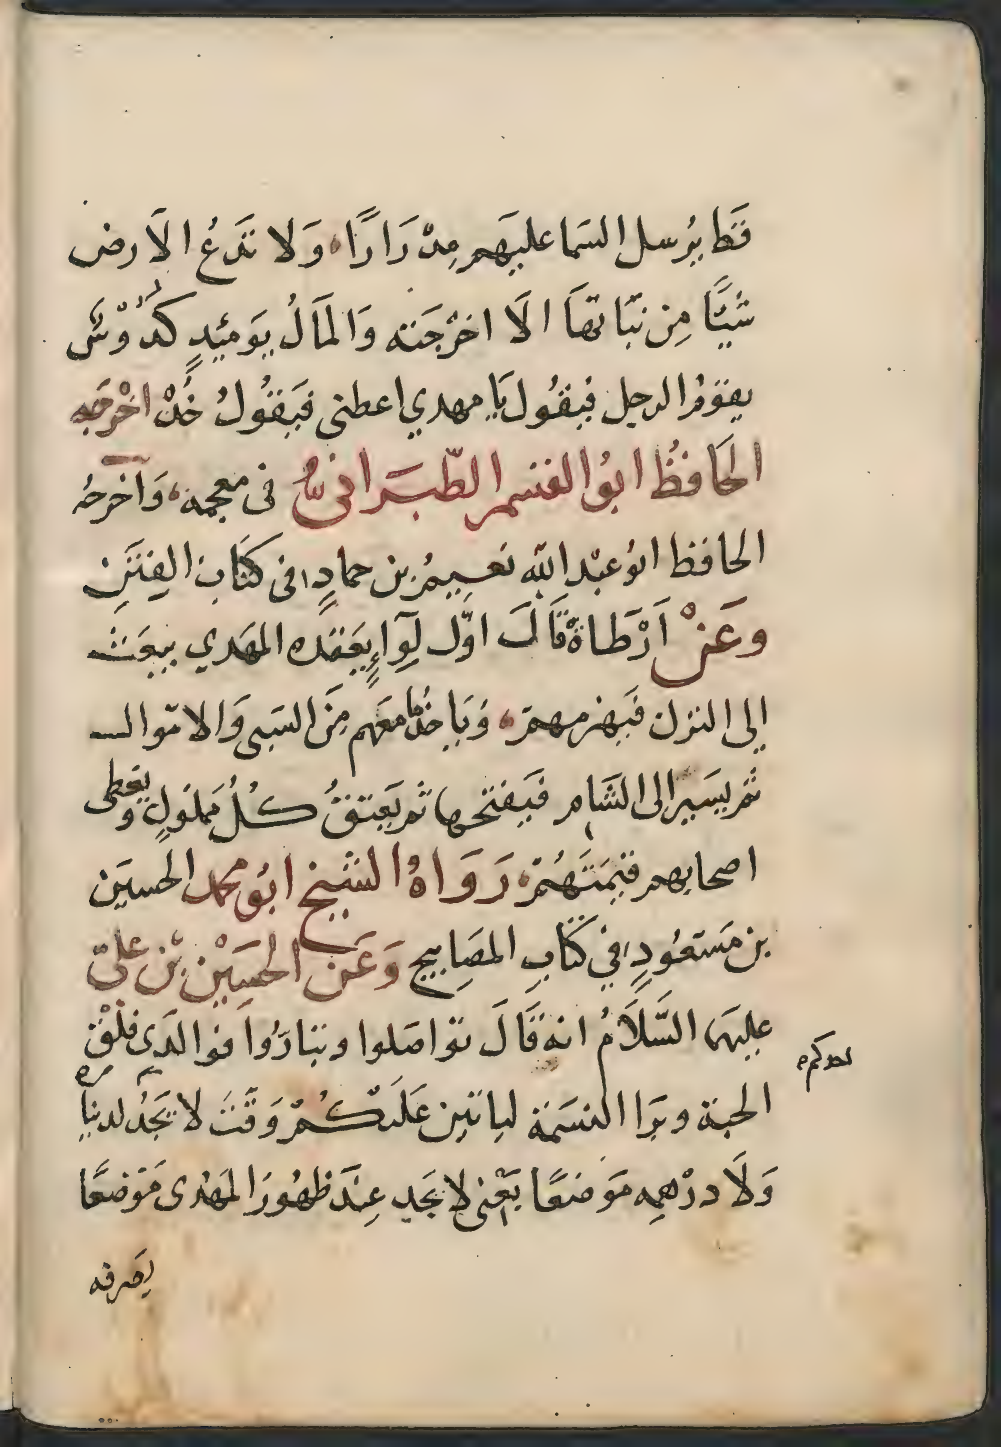 قط يُرسل السما عليهم مِدْرَارًا، وَلا تَدَعُ الاَرض
شَيْئًا مِن نَبَاتهَا الَا اخرَجَته وَالمَالُ يَومَئِدٍ كدُوْسٌ
يقوَمُ الرجل فيقُول يَا مهدي اعطنى فَيَقُولُ خُذْ اخْرَجَه
الحَافِظُ ابُو القسم الطّبَرانى فى معجمه، وَاَخرَجهُ
الحافظ ابُو عَبْد الله نعَيمُ بن حمادٍ، فى كتَاب الفِتَنِ
وعَنْ اَرْطَاةْ قَالَ اوّل لِوَاءٍ يَعقده المَهدي يبعَث
إلى الترك فَيَهزمهمْ، وَيَاخذُ ما معَهم مِنَ السَبى وَالاموَال
ثم يَسَير الى الشَام فَيَفتَحها ثم يَعتِقُ كُلُ مَملوكٍ ويُعطى
اصحابهم قِيمَتَهُمْ، رَوَاهُ الشيخ ابُو محمد الحسَين
بن مَسَعُودٍ، فى كتَابِ المصَابيح وَعَن الحسَيْن بْن علىّ
عليهمَا السَّلاَمُ انه قَالَ تَوَاصَلوا وتبَارُّوا فوَالذَى فلَقَ
احدكم
الحبة وبرَا النسَمَة ليَاتين عَلَيكُمْ وَقت لا يَجَدُ لدينَاره
وَلَا درْهمِه مَوضعًا يَعْنى لا يجَد عِندَ ظهُورَ المَهدى مَوضعًا
يَصَرفه